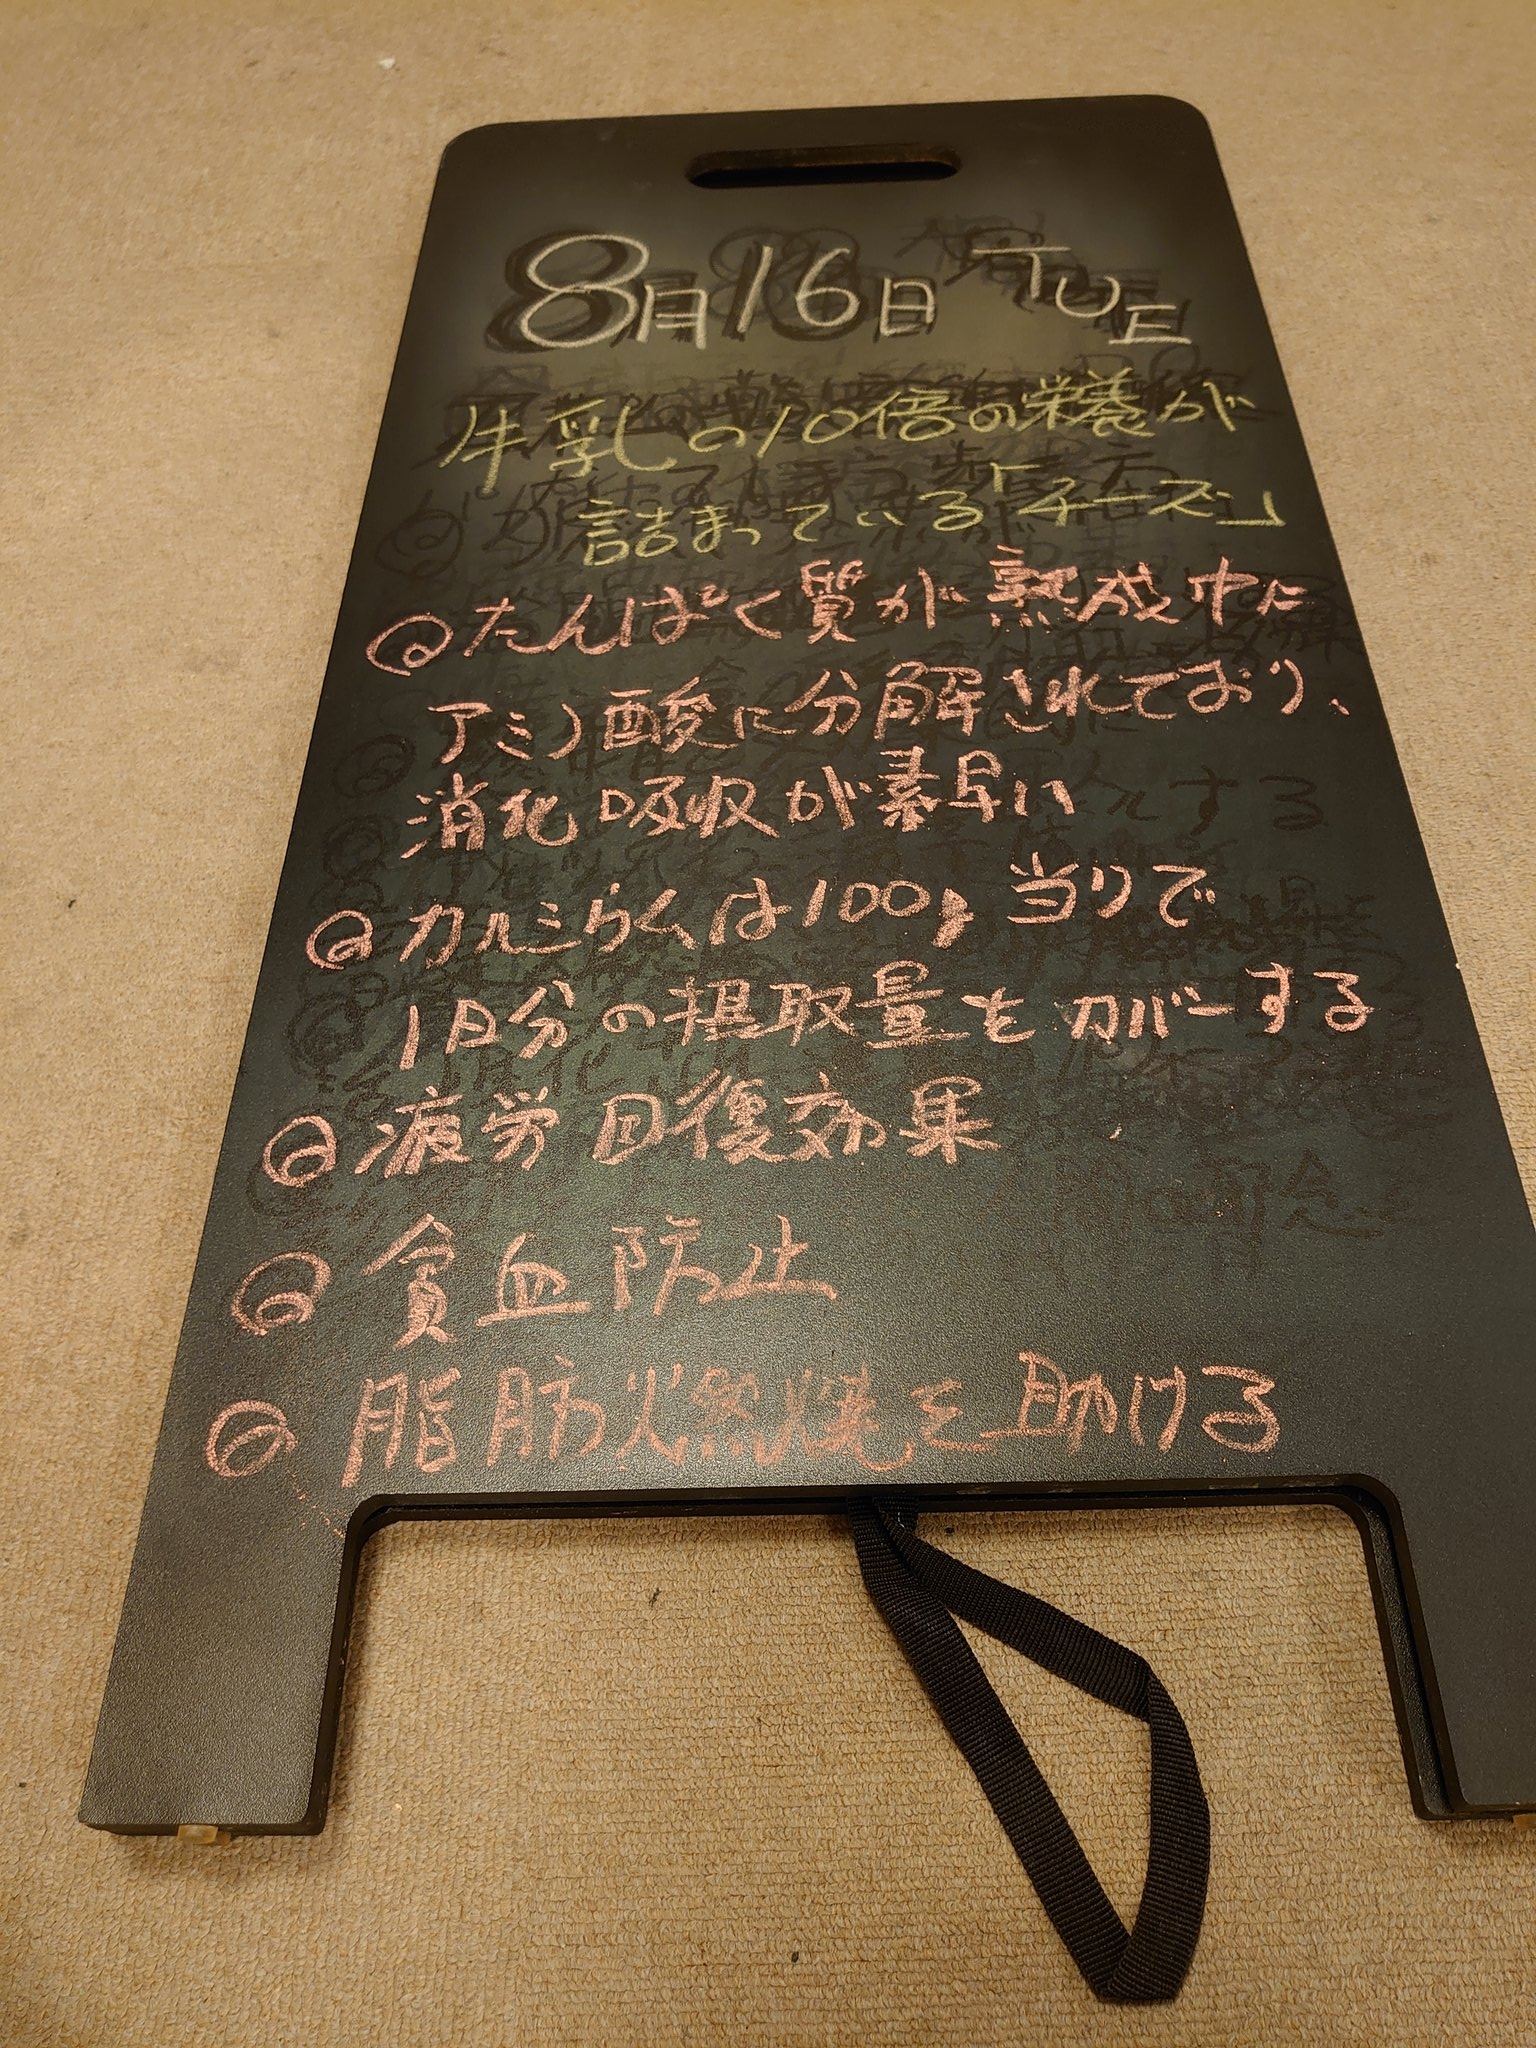 8月16日 TUE
牛乳の10倍の栄養が
詰まっている「チーズ」
たんぱく質が熟成中に
アミノ酸に分解されており、
消化吸収が素早い
カルミらくは100g当りで
1日分の摂取量をカバーする
疲労回復効果
貧血防止
脂肪燃焼を助ける